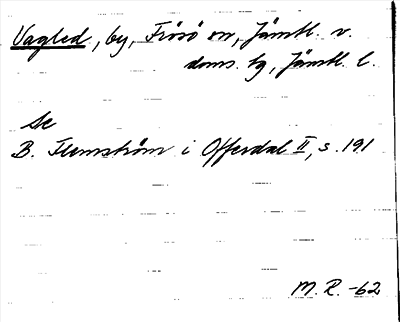 Vagled, by, Frösö sn, Jämtl. v.
doms. tg, Jämtl. l.
Se
B. Flemström i Offerdal II, s. 191
M. R. -62